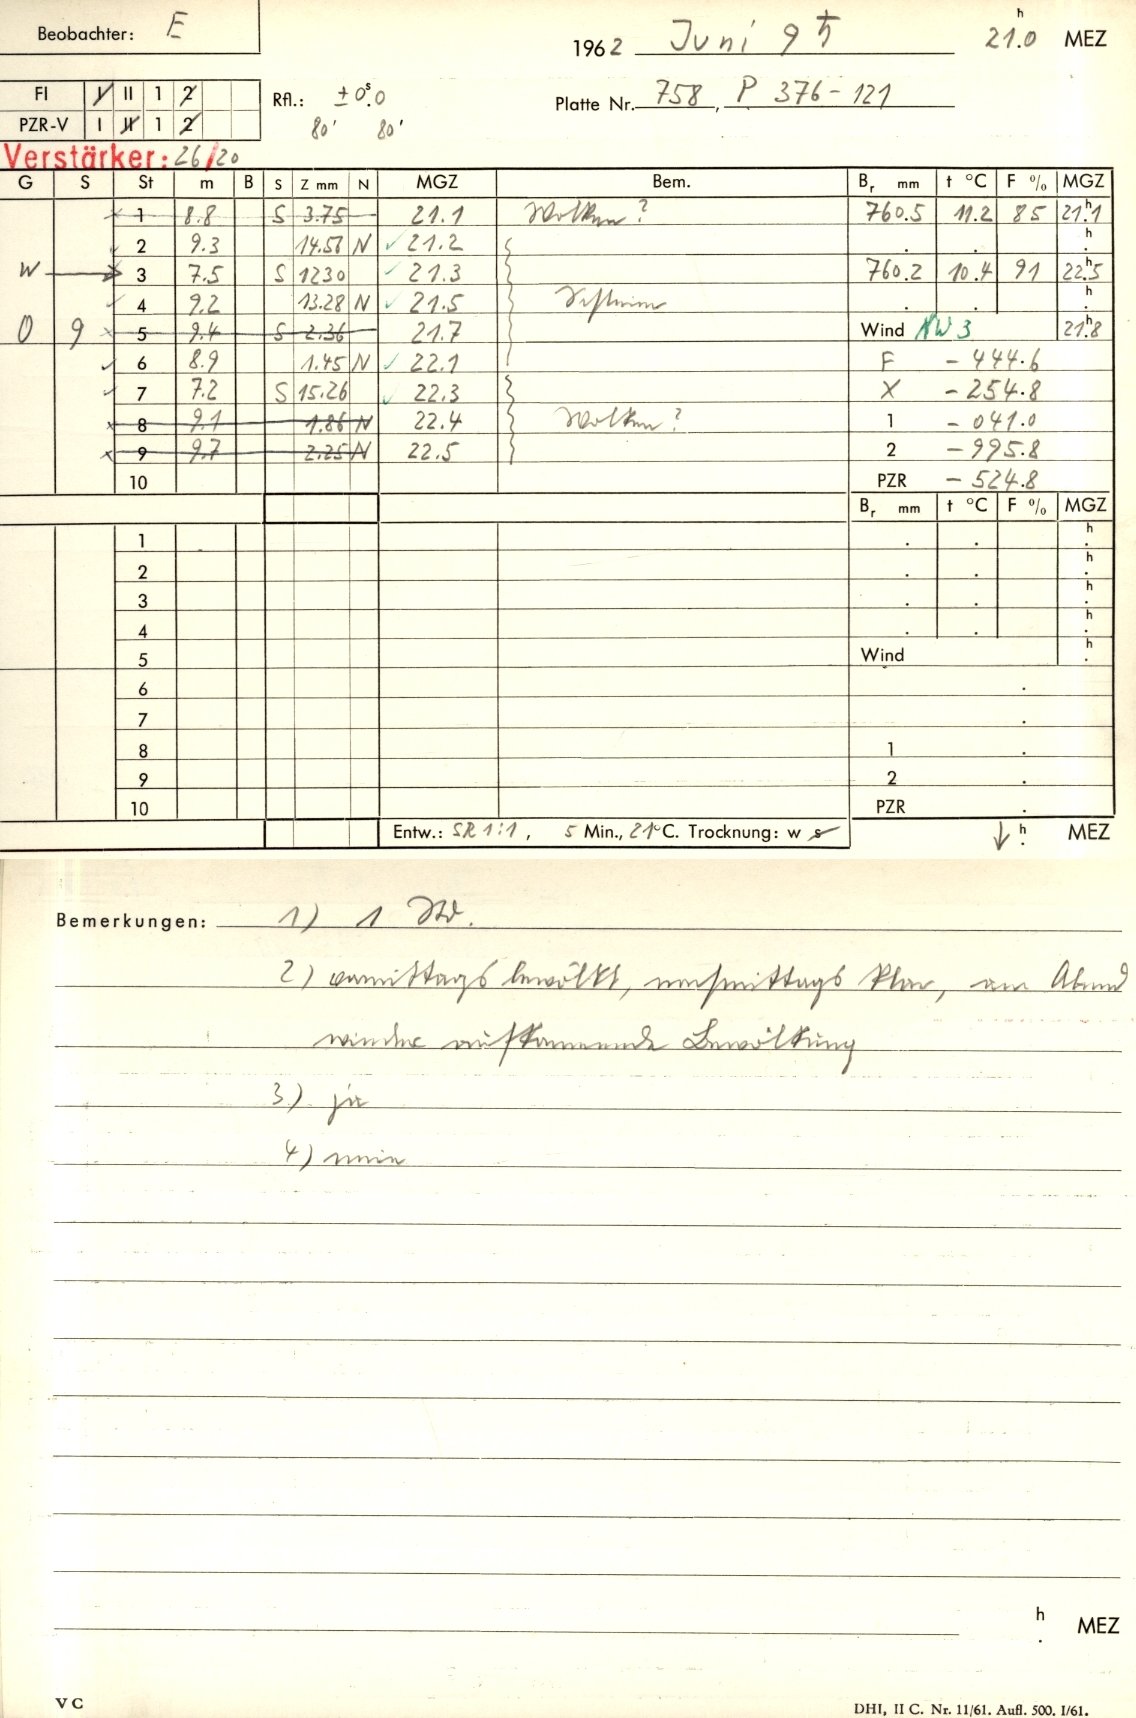 Beobachter: E
1962 Juni 9 ♄ 21.0 h MEZ
FI I II 1 2
PZR-V I II 1 2
Rfl.: ± 0.0 s
80' 80'
Platte Nr. 758, P 376-121
Verstärker: 26/20
G S St m B S Z mm N MGZ Bem. Br mm t °C F % MGZ
1 8.8 S 3.75 21.1 Wolken? 760.5 11.2 85 21.1 h
2 9.3 14.58 N 21.2 . . h .
W 3 7.5 S 12.30 21.3 760.2 10.4 91 22.5 h
4 9.2 13.28 N 21.5 . . h .
O 9 5 9.4 S 2.36 21.7 Wind NW 3 21.8 h
6 8.9 1.45 N 22.1 F - 444.6
7 7.2 S 15.26 22.3 X - 254.8
8 9.1 1.86 N 22.4 Wolken? 1 - 041.0
9 9.7 2.25 N 22.5 2 - 995.8
10 PZR - 524.8
Br mm t °C F % MGZ
1 . . h .
2 . . h .
3 . . h .
4 . . h .
5 Wind h .
6 .
7 .
8 1 .
9 2 .
10 PZR .
Entw.: SR 1:1, 5 Min., 21°C. Trocknung: w s ↓ h . MEZ
Bemerkungen: 1) 1 Std.
2) vormittags bewölkt, nachmittags klar, am Abend
wieder aufkommende Bewölkung
3) ja
4) nein
h . MEZ
V C
DHI, II C. Nr. 11/61. Aufl. 500. I/61.